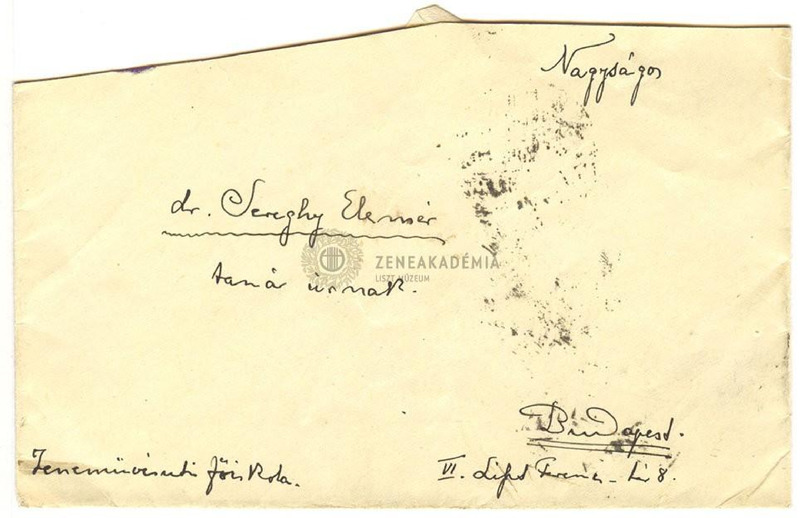 Nagyságos
dr. Sereghy Elemér
ZENEAKADÉMIA
LISZT MÚZEUM
tanár úrnak.
Budapest.
Zeneművészeti főiskola.
VI. Liszt Ferenc-tér 8.